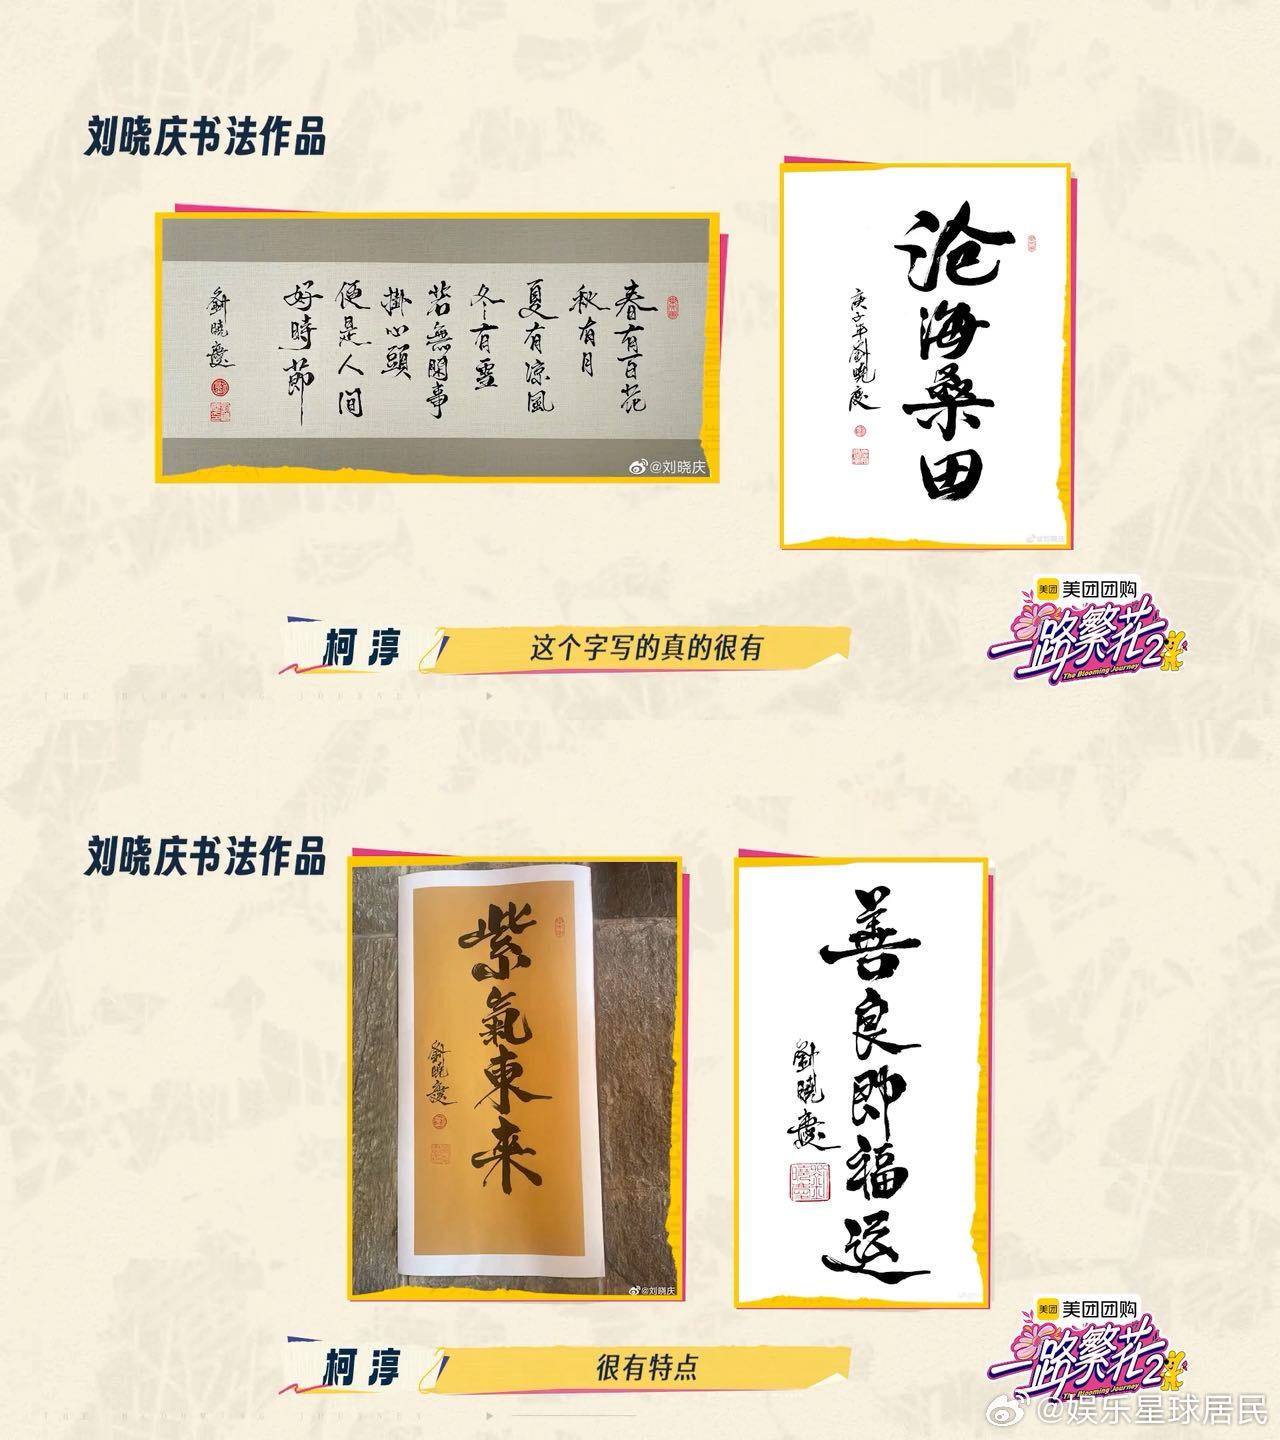 刘晓庆书法作品
春有百花
秋有月
夏有凉风
冬有雪
若無閑事
掛心頭
便是人間
好時節
劉曉慶
@刘晓庆
滄海桑田
庚子年劉曉慶
@刘晓庆
美团 美团团购
一路繁花2
The Blooming Journey
柯淳
这个字写的真的很有
THE BLOOMING JOURNEY
刘晓庆书法作品
紫氣東来
劉曉慶
@刘晓庆
善良即福运
劉曉慶
美团 美团团购
一路繁花2
The Blooming Journey
柯淳
很有特点
THE BLOOMING JOURNEY
@娱乐星球居民